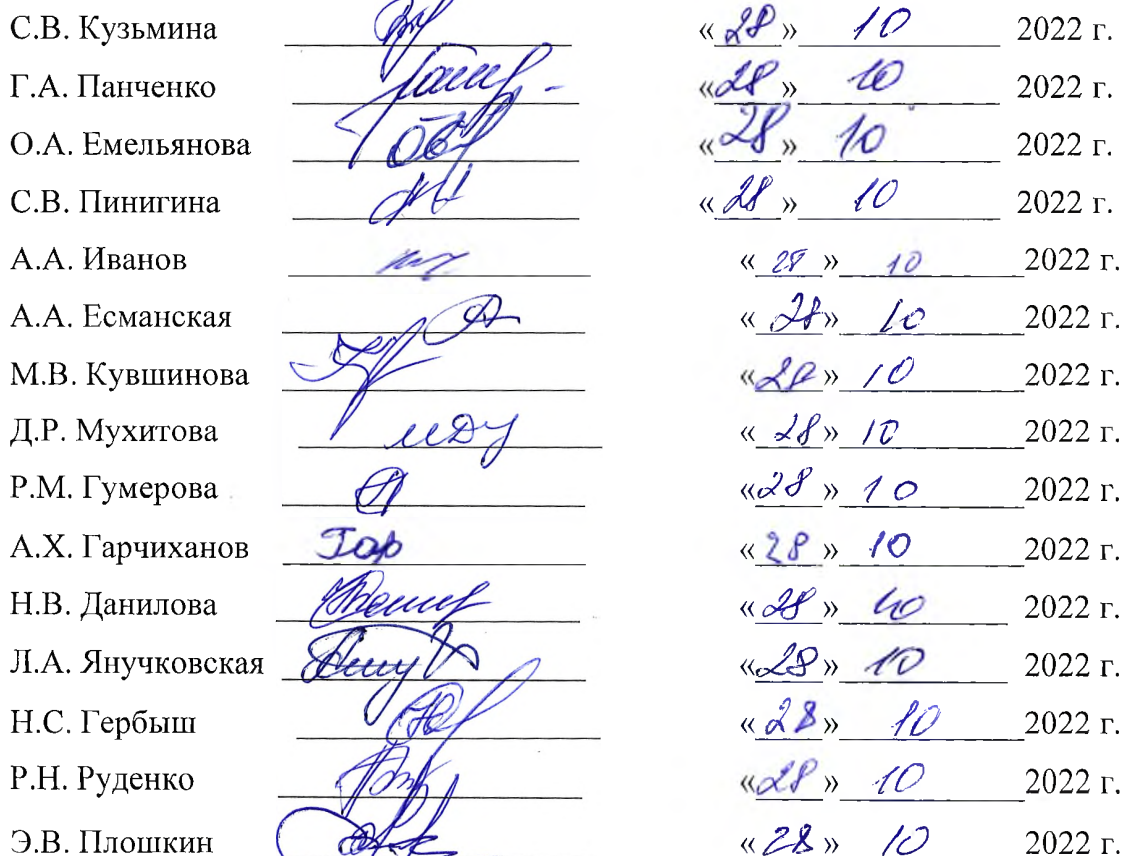 С.В. Кузьмина «28» 10 2022 г.
Г.А. Панченко «28» 10 2022 г.
О.А. Емельянова «28» 10 2022 г.
С.В. Пинигина «28» 10 2022 г.
А.А. Иванов «28» 10 2022 г.
А.А. Есманская «28» 10 2022 г.
М.В. Кувшинова «28» 10 2022 г.
Д.Р. Мухитова «28» 10 2022 г.
Р.М. Гумерова «28» 10 2022 г.
А.Х. Гарчиханов Гар «28» 10 2022 г.
Н.В. Данилова «28» 10 2022 г.
Л.А. Янучковская «28» 10 2022 г.
Н.С. Гербыш «28» 10 2022 г.
Р.Н. Руденко «28» 10 2022 г.
Э.В. Плошкин «28» 10 2022 г.